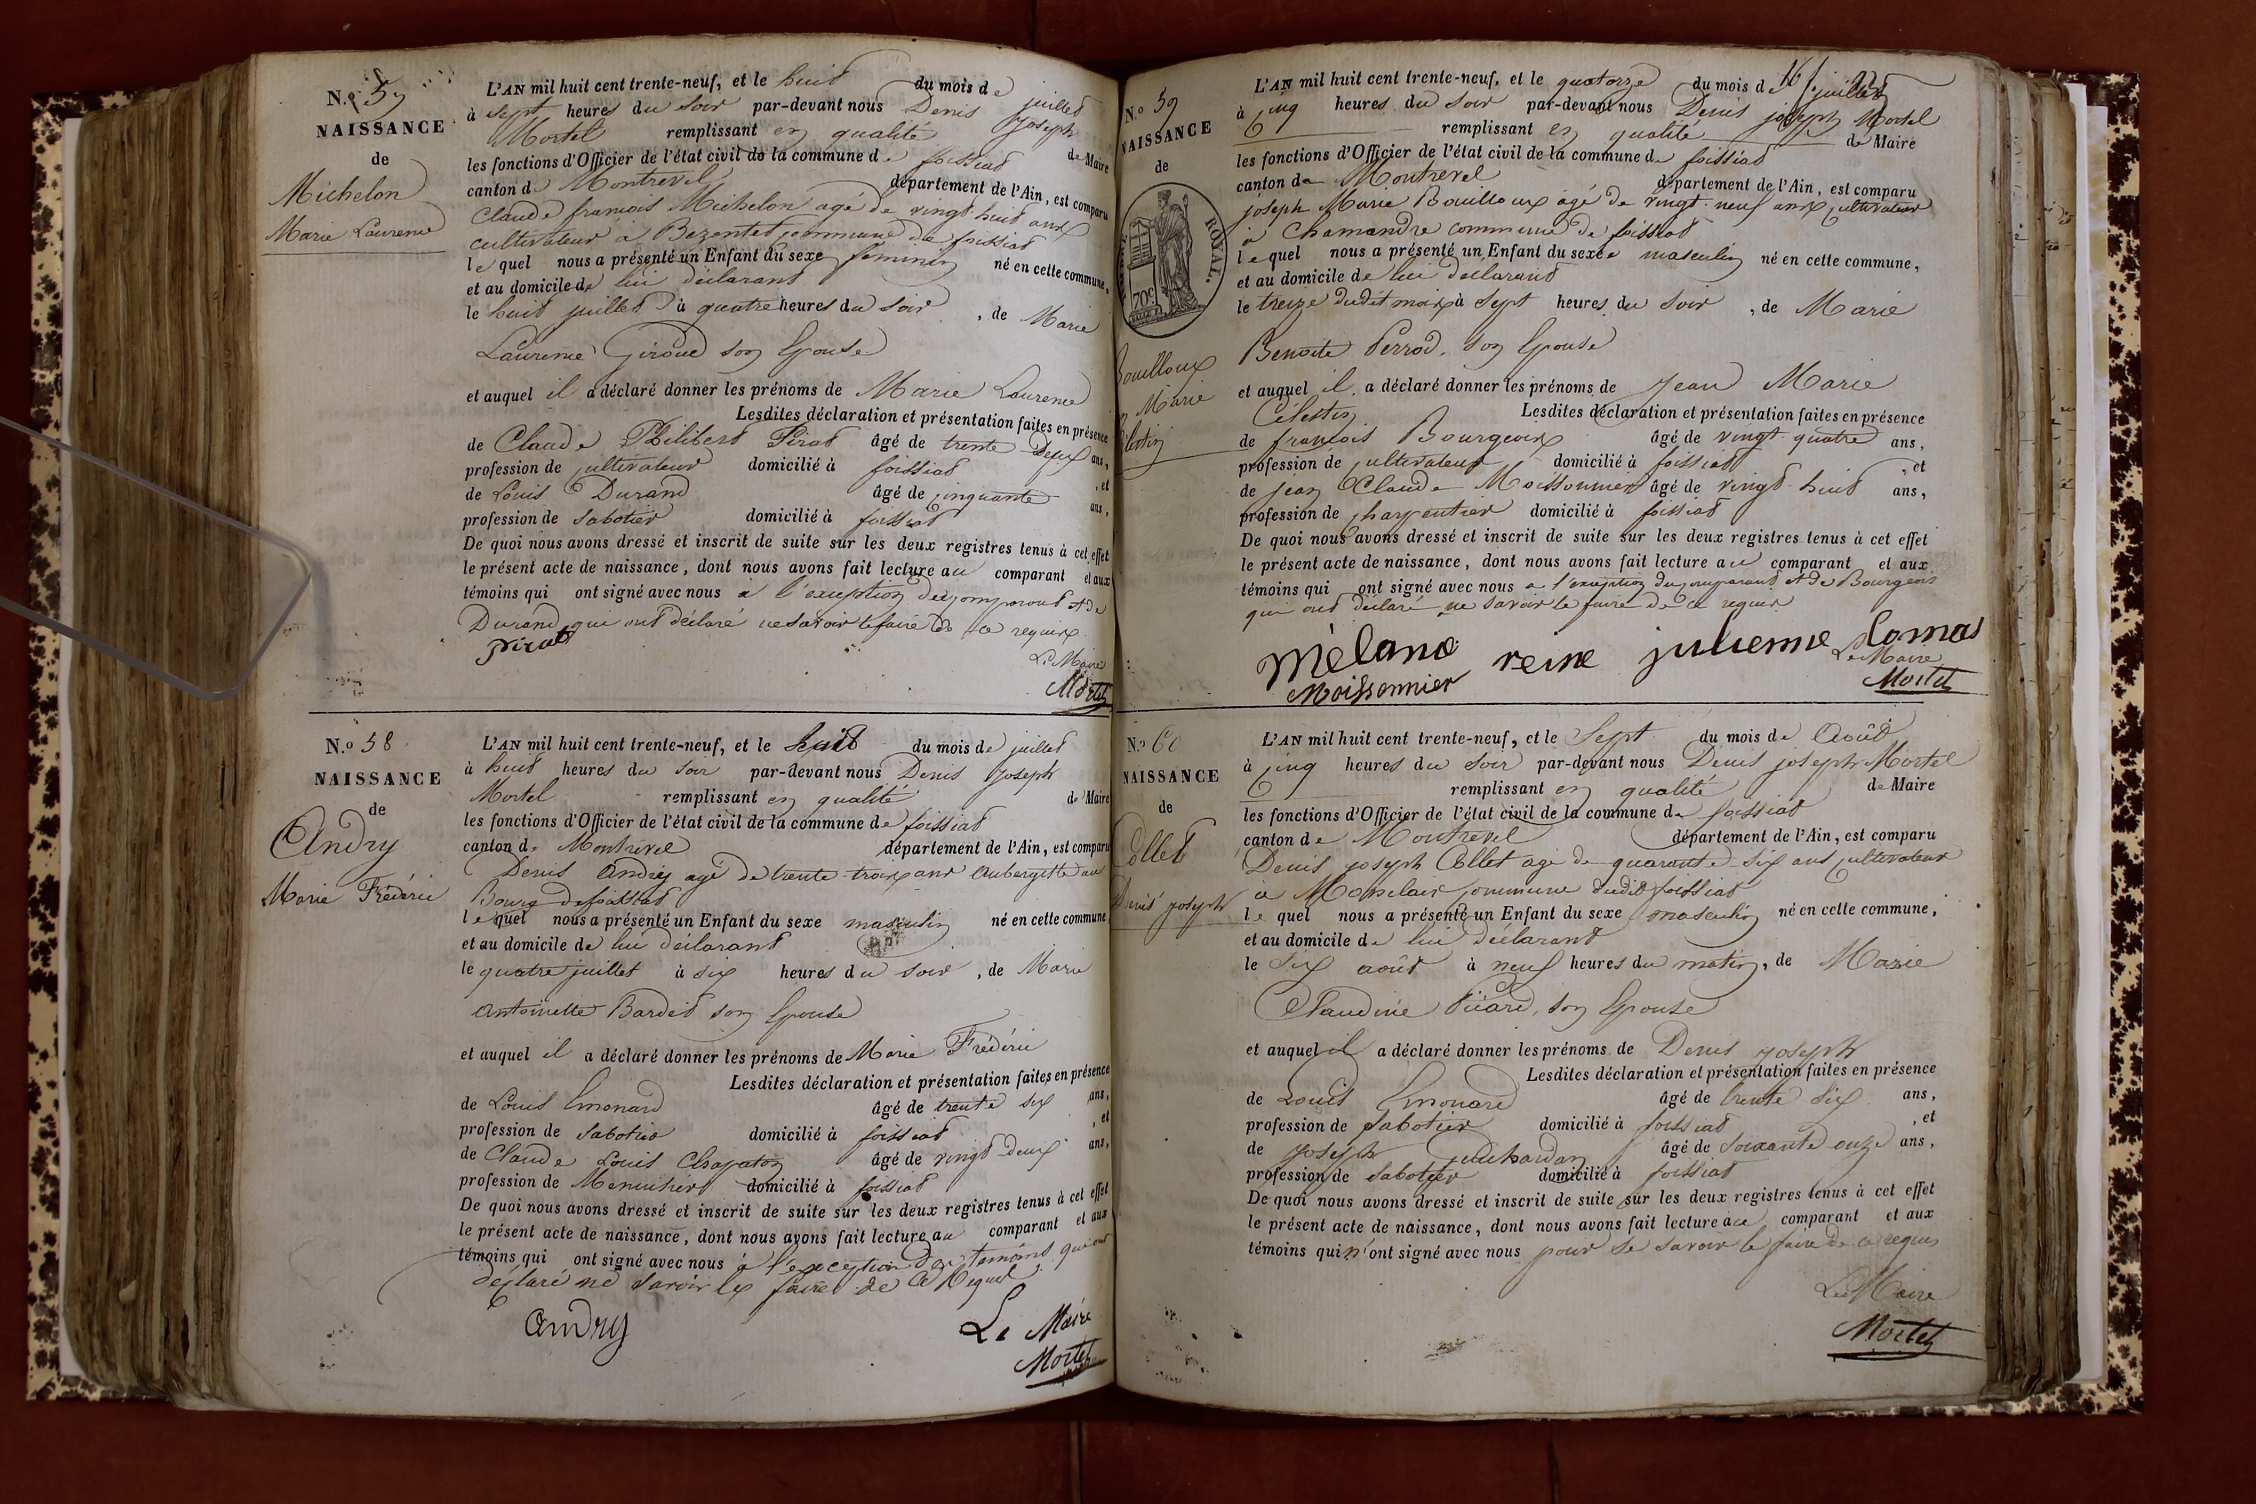 N.o 57
NAISSANCE
de
Michelon
Marie Laurence
L'AN mil huit cent trente-neuf, et le huit du mois de juillet
à sept heures du soir par-devant nous Denis Joseph
Mortel remplissant en qualité de Maire
les fonctions d'Officier de l'état civil de la commune de foissiat
canton de Montrevel département de l'Ain, est comparu
Claude francois Michelon agé de vingt huit ans
cultivateur a Bezentet commune de foissiat
le quel nous a présenté un Enfant du sexe feminin né en cette commune,
et au domicile de lui déclarant
le huit juillet à quatre heures du soir, de Marie
Laurence Giroud son Epouse
et auquel il a déclaré donner les prénoms de Marie Laurence
Lesdites déclaration et présentation faites en présence
de Claude Philibert Pirat âgé de trente Deux ans,
profession de cultivateur domicilié à foissiat, et
de Louis Durand âgé de cinquante ans,
profession de sabotier domicilié à foissiat
De quoi nous avons dressé et inscrit de suite sur les deux registres tenus à cet effet
le présent acte de naissance, dont nous avons fait lecture au comparant et aux
témoins qui ont signé avec nous a l'exception du comparant et de
Durand qui ont déclaré ne savoir le faire de ce requis
Pirat
Le Maire
Mortel
N.o 58
NAISSANCE
de
Andry
Marie Frédéric
L'AN mil huit cent trente-neuf, et le huit du mois de juillet
à huit heures du soir par-devant nous Denis Joseph
Mortel remplissant en qualité de Maire
les fonctions d'Officier de l'état civil de la commune de foissiat
canton de Montrevel département de l'Ain, est comparu
Denis Andry agé de trente trois ans Aubergiste au
Bourg de foissiat
le quel nous a présenté un Enfant du sexe masculin né en cette commune
et au domicile de lui déclarant
le quatre juillet à six heures du soir, de Marie
Antoinette Bardet son Epouse
et auquel il a déclaré donner les prénoms de Marie Frédéric
Lesdites déclaration et présentation faites en présence
de Louis Emonard âgé de trente six ans,
profession de sabotier domicilié à foissiat, et
de Claude Louis Chapaton âgé de vingt Deux ans,
profession de Menuisier domicilié à foissiat
De quoi nous avons dressé et inscrit de suite sur les deux registres tenus à cet effet
le présent acte de naissance, dont nous avons fait lecture au comparant et aux
témoins qui ont signé avec nous à l'exception des temoins qui ont
déclaré ne savoir le faire de ce Requis
Andry
Le Maire
Mortel
N.o 59
NAISSANCE
de
ROYAL.
70c
Bouilloux
Marie
L'AN mil huit cent trente-neuf, et le quatorze du mois de juillet
à cinq heures du soir par-devant nous Denis joseph Mortel
remplissant en qualité de Maire
les fonctions d'Officier de l'état civil de la commune de foissiat
canton de Montrevel département de l'Ain, est comparu
joseph Marie Bouilloux agé de vingt neuf ans cultivateur
à Chamandre commune de foissiat
le quel nous a présenté un Enfant du sexe masculin né en cette commune,
et au domicile de lui declarant
le treize dudit mois à sept heures du soir, de Marie
Benoite Perrod son Epouse
et auquel il a déclaré donner les prénoms de Jean Marie
Célestin Lesdites déclaration et présentation faites en présence
de francois Bourgeois âgé de vingt quatre ans,
profession de cultivateur domicilié à foissiat, et
de jean Claude Moissonnier âgé de vingt huit ans,
profession de charpentier domicilié à foissiat
De quoi nous avons dressé et inscrit de suite sur les deux registres tenus à cet effet
le présent acte de naissance, dont nous avons fait lecture au comparant et aux
témoins qui ont signé avec nous a l'exception du comparant et de Bourgeois
qui ont déclaré ne savoir le faire de ce requis
Mélano reine julienne lomas
Moissonnier
Le Maire
Mortel
N.o 60
NAISSANCE
de
Collet
Denis joseph
L'AN mil huit cent trente-neuf, et le Sept du mois de Août
à cinq heures du soir par-devant nous Denis joseph Mortel
remplissant en qualité de Maire
les fonctions d'Officier de l'état civil de la commune de foissiat
canton de Montrevel département de l'Ain, est comparu
Denis joseph Collet agé de quarante six ans cultivateur
a commune dudit foissiat
le quel nous a présenté un Enfant du sexe masculin né en cette commune,
et au domicile de lui déclarant
le Six août à neuf heures du matin, de Marie
Claudine Picard, son Epouse
et auquel il a déclaré donner les prénoms de Denis joseph
Lesdites déclaration et présentation faites en présence
de Louis Emonard âgé de trente Six ans,
profession de sabotier domicilié à foissiat, et
de joseph âgé de soixante onze ans,
profession de sabotier domicilié à foissiat
De quoi nous avons dressé et inscrit de suite sur les deux registres tenus à cet effet
le présent acte de naissance, dont nous avons fait lecture au comparant et aux
témoins qui n'ont signé avec nous pour ne savoir le faire de ce requis
Le Maire
Mortel